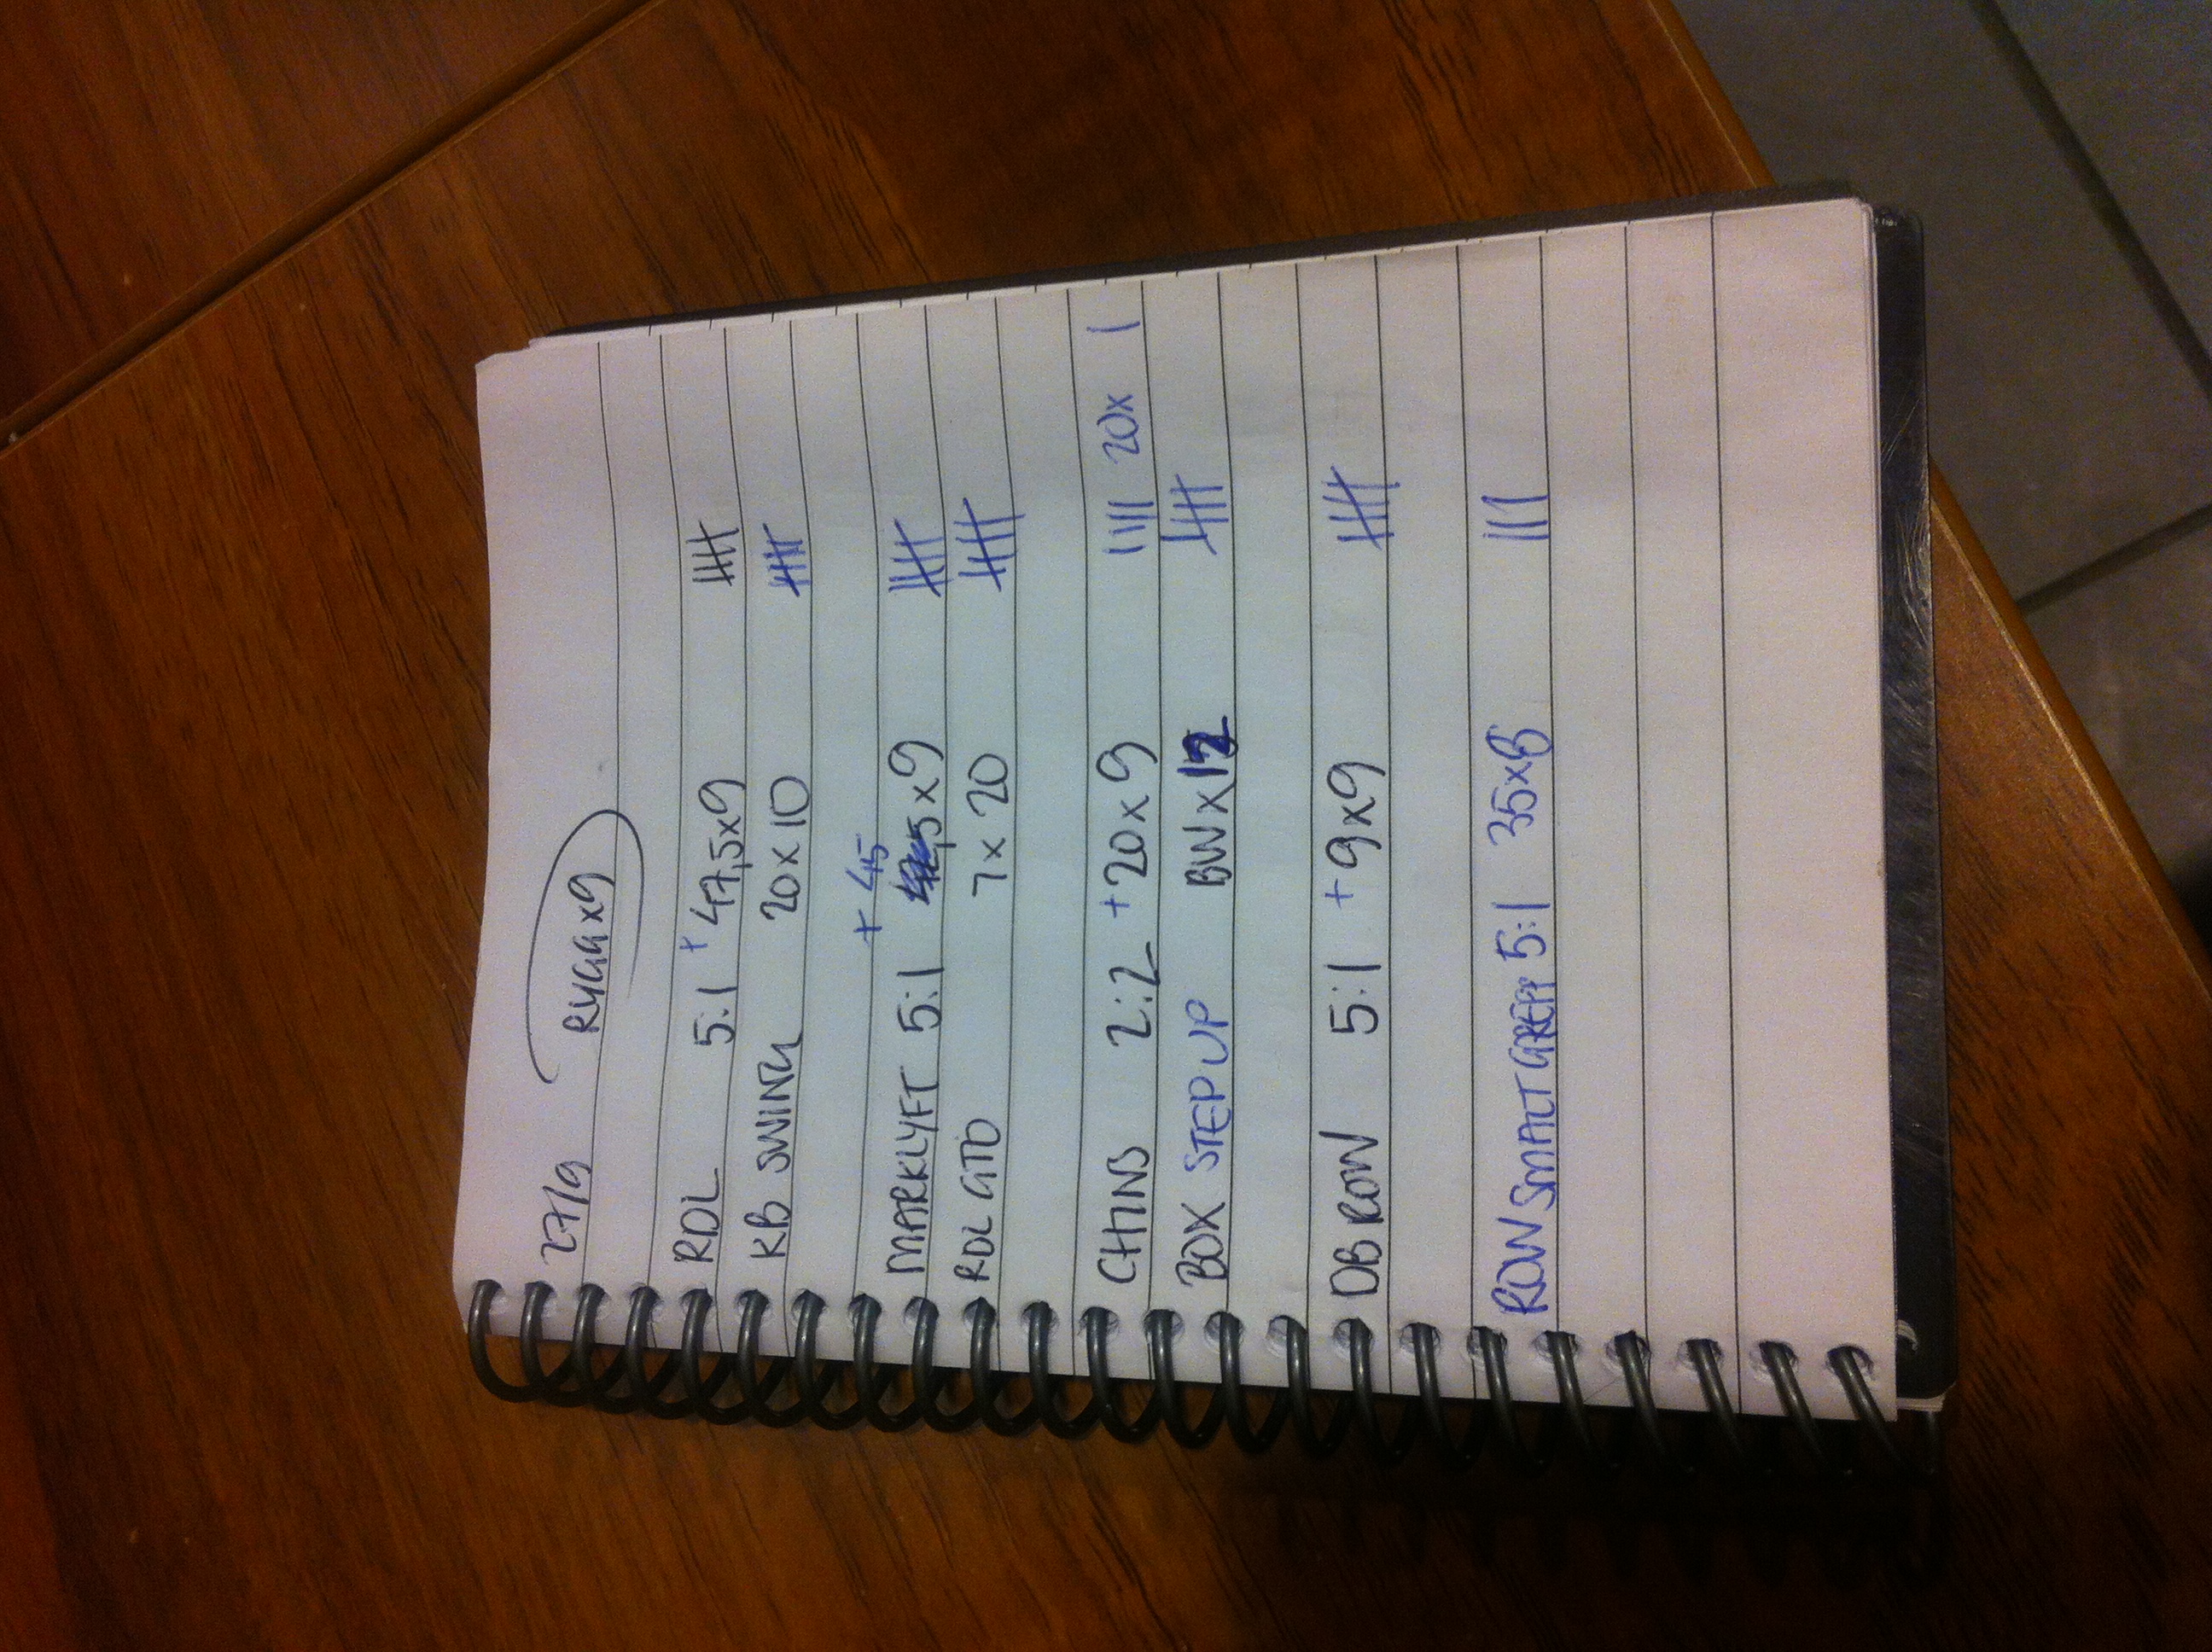 27/9 RYGG x9
RDL 5:1 + 47,5x9 ||||
KB SWING 20x10 ||||
+ 45
MARKLYFT 5:1 x9 ||||
RDL GTO 7x20 ||||
CHINS 2:2 + 20x9 |||| 20x |
BOX STEP UP BWx12 ||||
DB ROW 5:1 + 9x9 ||||
ROW SMALT GREPP 5:1 35x8 |||